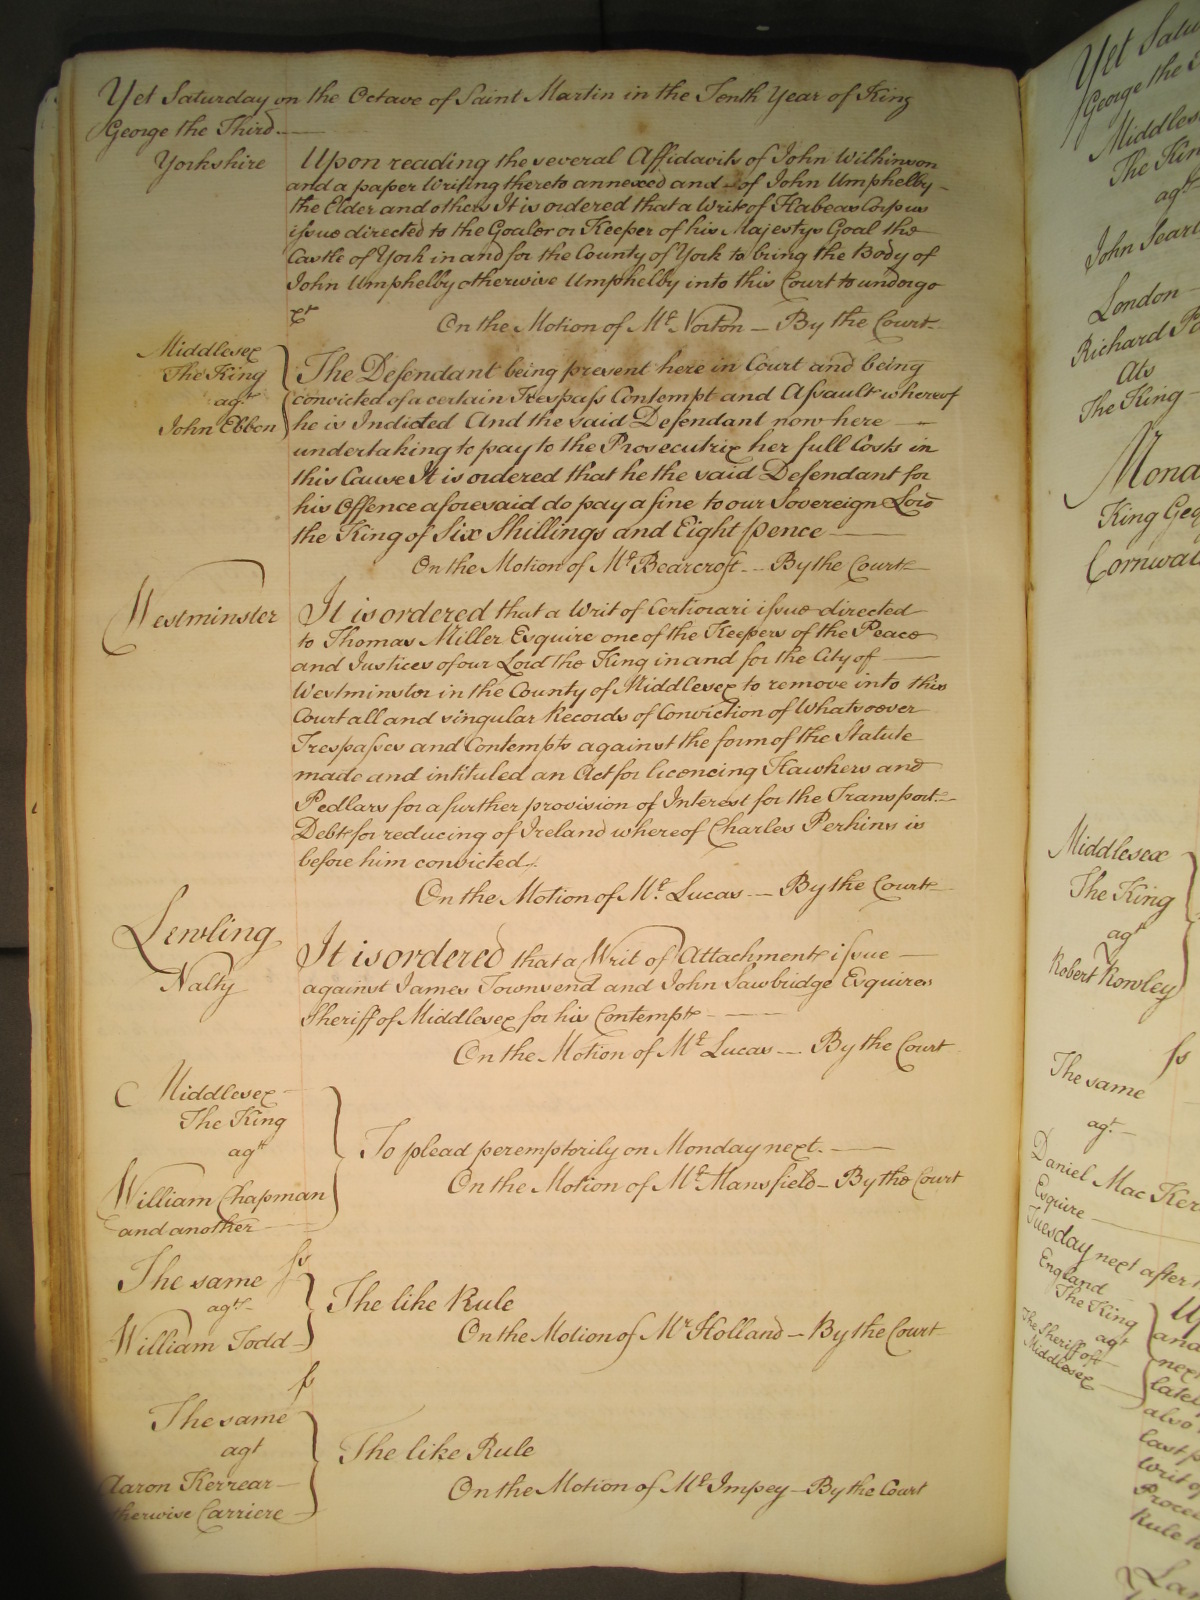 Yet Saturday on the Octave of Saint Martin in the Tenth Year of King
George the Third
Yorkshire
Upon reading the several Affidavits of John Wilkinson
and a paper Writing thereto annexed and of John Umphelby
the Elder and others It is ordered that a Writ of Habeas Corpus
issue directed to the Goaler or Keeper of his Majestys Goal the
Castle of York in and for the County of York to bring the Body of
John Umphelby otherwise Umphelby into this Court to undergo
&c
On the Motion of Mr. Norton — By the Court
Middlesex
The King
agt
John Ebbon
The Defendant being present here in Court and being
convicted of a certain Trespass Contempt and Assault whereof
he is Indicted And the said Defendant now here
undertaking to pay to the Prosecutrix her full Costs in
this Cause It is ordered that he the said Defendant for
his Offence aforesaid do pay a fine to our Sovereign Lord
the King of Six Shillings and Eight pence
On the Motion of Mr. Bearcroft — By the Court
Westminster
It is ordered that a Writ of Certiorari issue directed
to Thomas Miller Esquire one of the Keepers of the Peace
and Justices of our Lord the King in and for the City of
Westminster in the County of Middlesex to remove into this
Court all and singular Records of Conviction of Whatsoever
Trespasses and Contempts against the form of the Statute
made and intituled an Act for licencing Hawkers and
Pedlars for a further provision of Interest for the Transport
Debt for reducing of Ireland whereof Charles Perkins is
before him convicted.
On the Motion of Mr. Lucas — By the Court
Lewling
Nalty
It is ordered that a Writ of Attachment issue
against James Townsend and John Sawbridge Esquires
Sheriff of Middlesex for his Contempt
On the Motion of Mr. Lucas — By the Court
Middlesex
The King
agt
William Chapman
and another
To plead peremptorily on Monday next.
On the Motion of Mr. Mansfield — By the Court
ss
The same
agt
William Todd
The like Rule
On the Motion of Mr Holland — By the Court
ss
The same
agt
Aaron Kerrear
otherwise Carriere
The like Rule
On the Motion of Mr. Impey — By the Court
Yet Satu
George the
Middles
The Kin
agt
John Sear
London
Richard
Als
The King
Mond
King Geo
Cornwal
Middlesex
The King
agt
Robert Rowley
ss
The same
agt.
Daniel Mac Ker
Esquire
Tuesday next after
England
The King
agt
The Sheriff of
Middlesex
Up
and
next
late
also
last p
Writ of
Proce
Rule